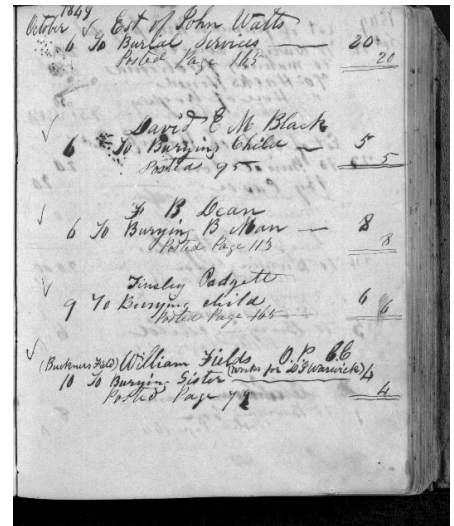 1849
October √ Est of John Watts
6 To Burial Services — 20
Posted Page 165 20
√ David E M Black
6 To Burying Child — 5
Posted 95 5
√ F B Dean
6 To Burying B Man — 8
Posted Page 113 8
√ Tinsley Padgett
9 To Burying child 6
Posted Page 165 6
√ (Buckners Field) William Fields O.P. C.C
10 To Burying Sister (works for Warwick) 4
Posted Page 79 4